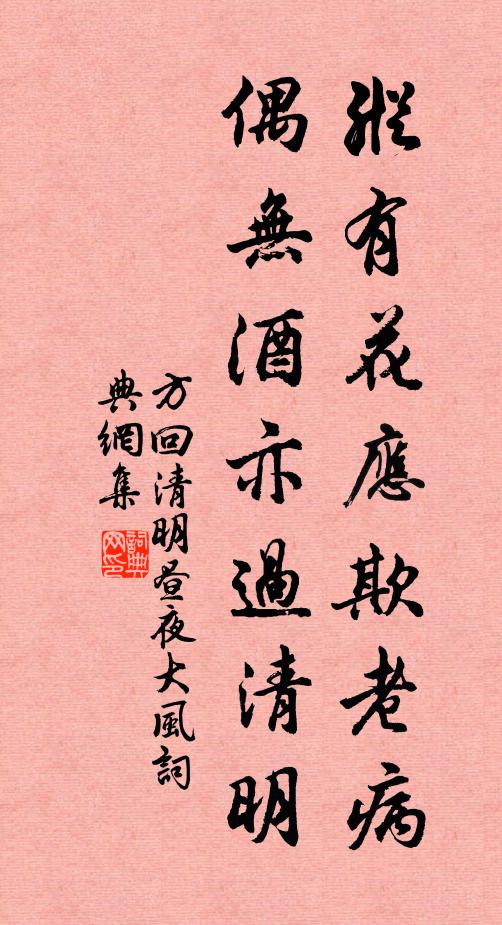 縱有花應欺老病
偶無酒亦過清明
方回清明昼夜大風詞
典網集
詞典
网印